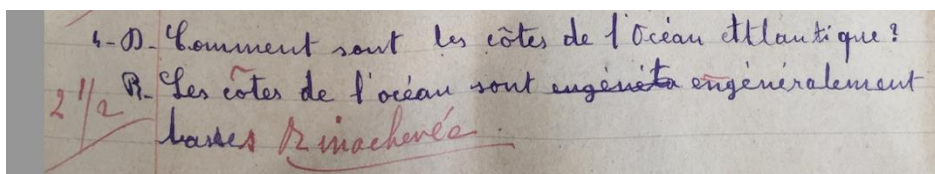 4-D- Comment sont les côtes de l'Océan Atlantique?
R- Les côtes de l'océan sont engénéta engénéralement
2 1/2
basses R inachevée